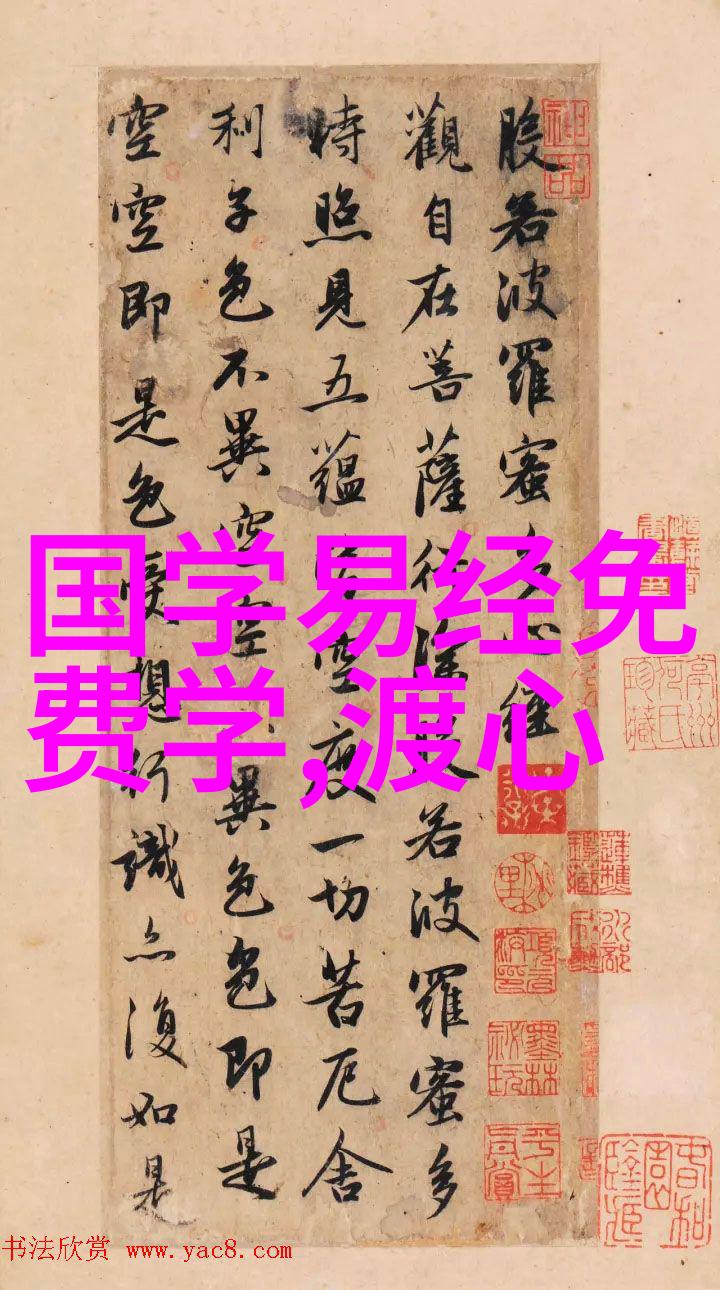 般若波羅蜜多心經
觀自在菩薩行深般若波羅蜜多
時照見五蘊皆空度一切苦厄舍
利子色不異空空不異色色即是
空空即是色受想行識亦復如是
神品
国学易经免
费学,渡心
书法欣赏 www.yac8.com